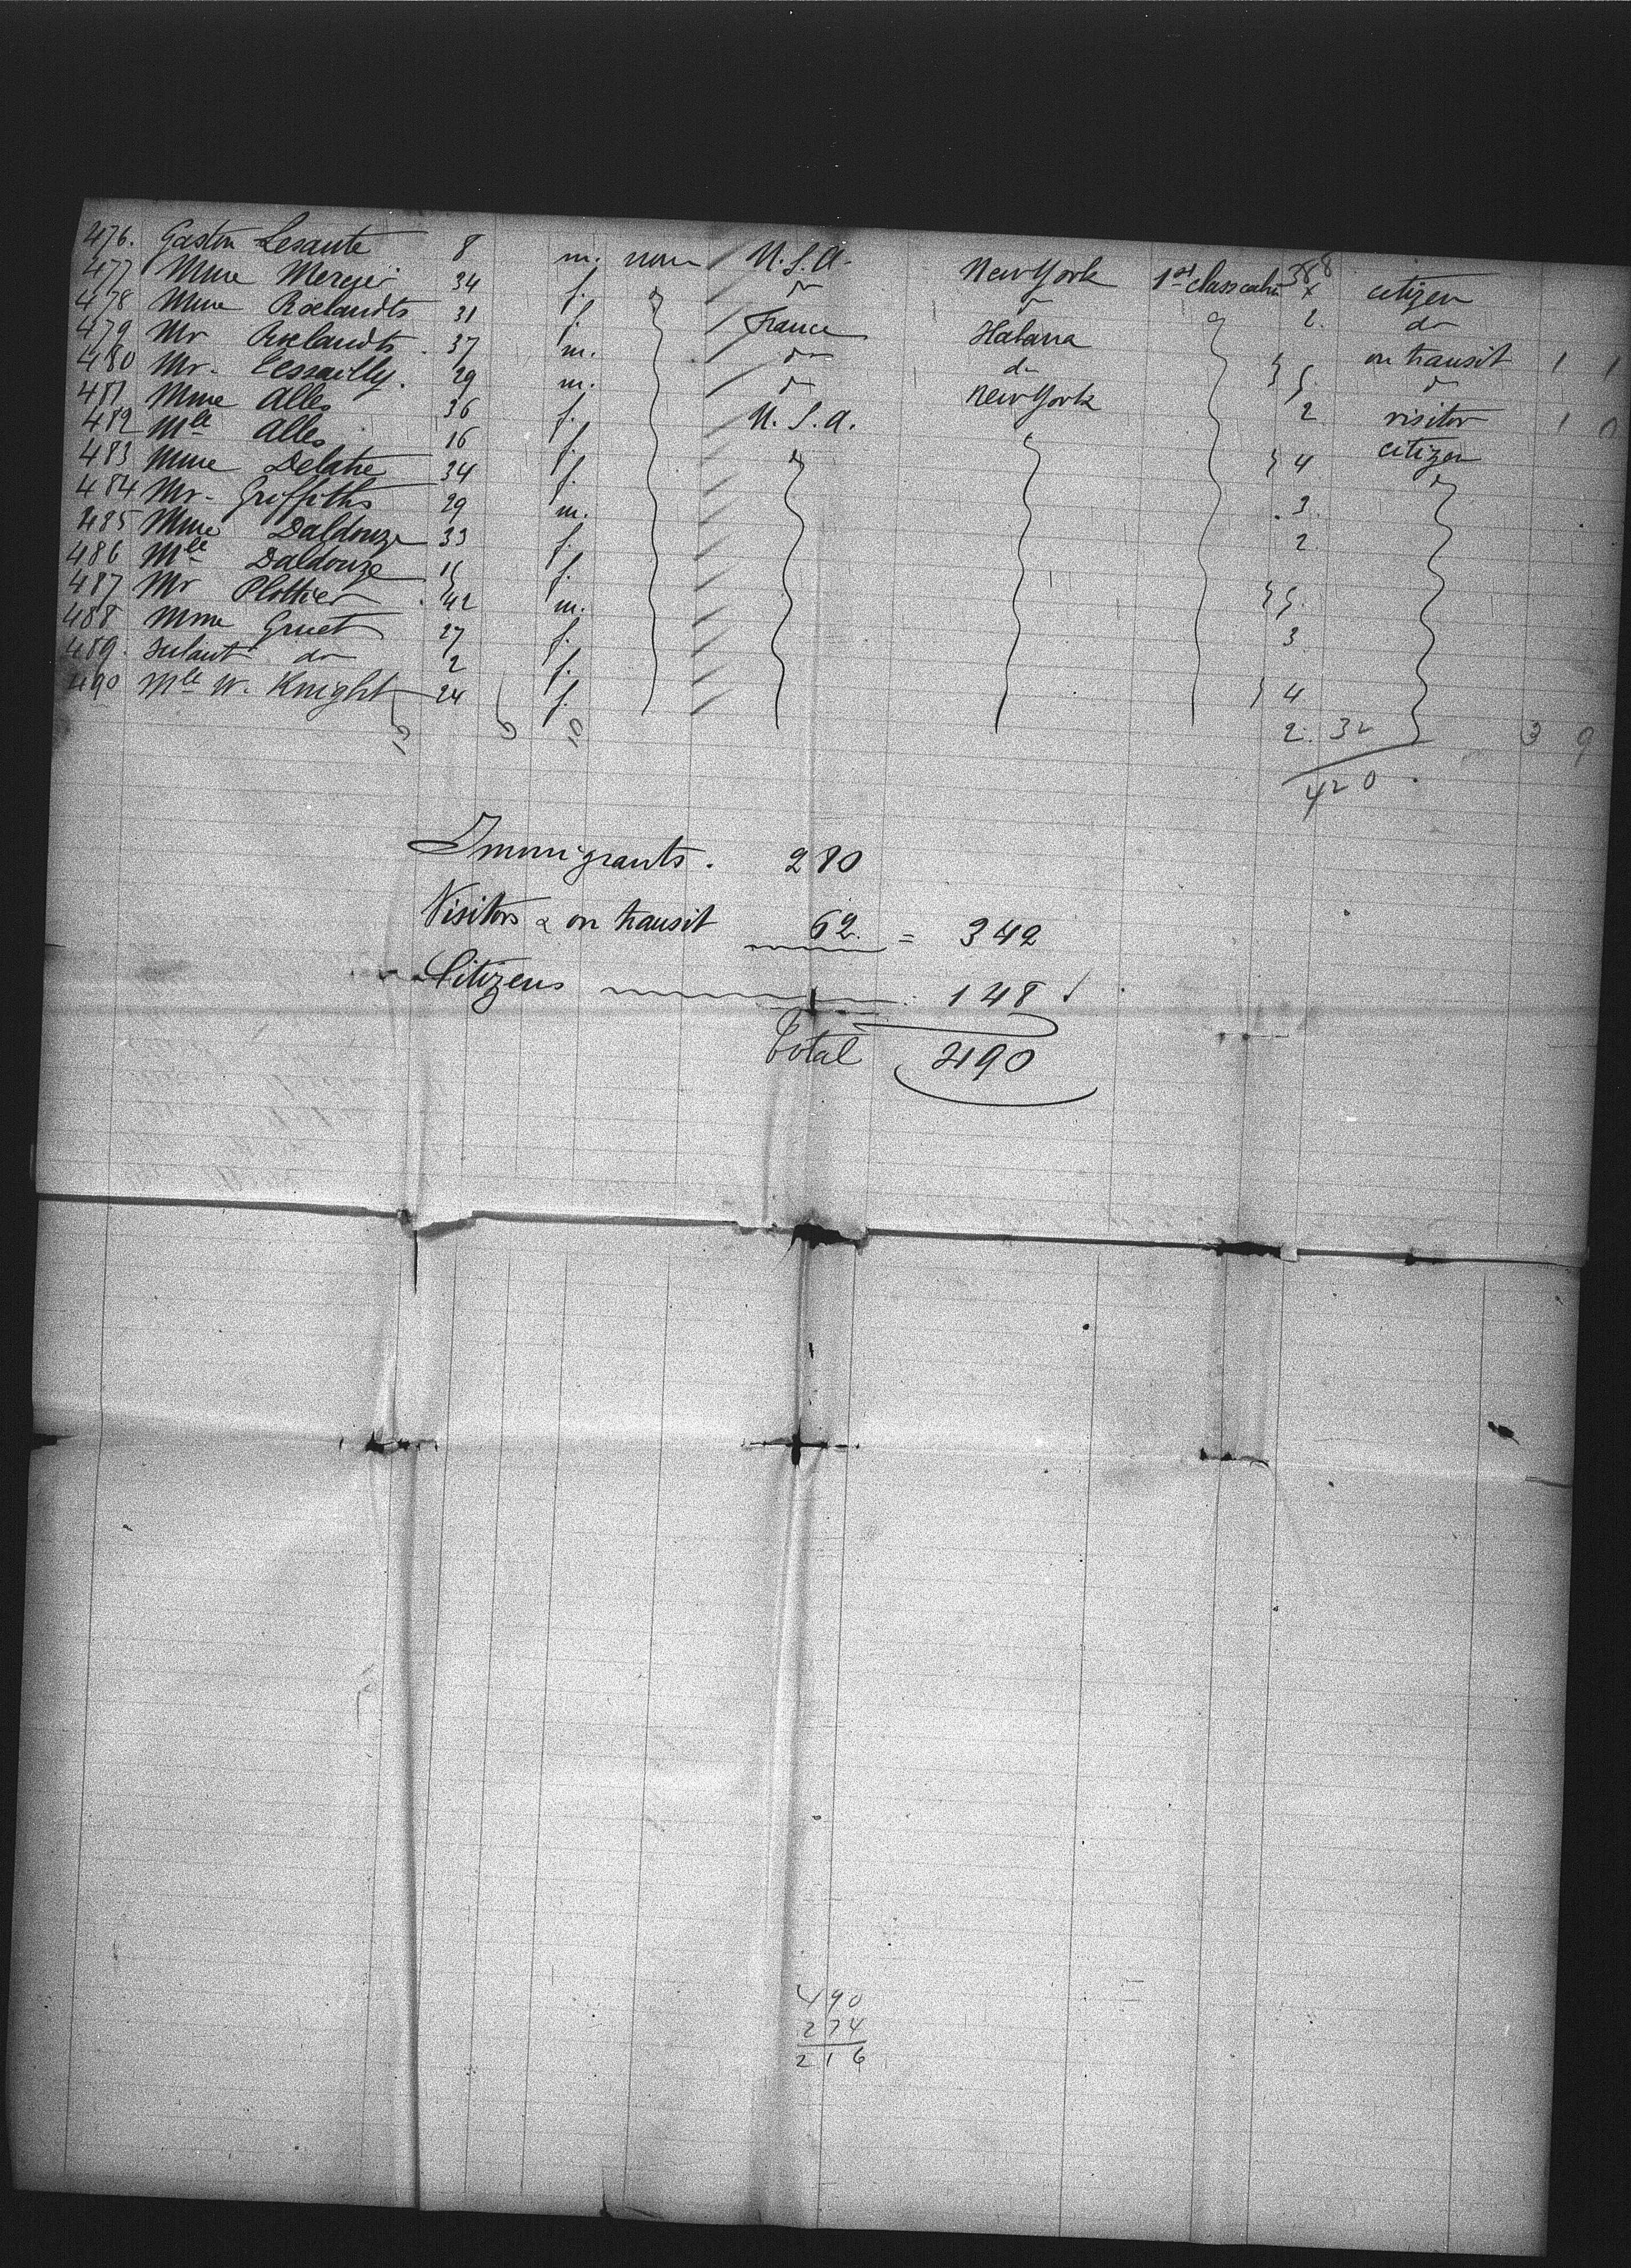 476. Gaston Lesante 8 m. none / U.S.A. New York 1st class cabin 388 x citizen
477 Mme Mercier 34 f. / do do 2. do
478 Mme Roelandts 31 f. / France Habana on transit 1 1
479 Mr Roelandts 37 m. / do do } 5. do
480 Mr. 29 m. / do New York 2 visitor 1 0
481 Mme Alles 36 f. U.S.A. citizen
482 Mlle Alles 16 f. } 4
483 Mme Delatre 34 f. 3.
484 Mr. Griffiths 29 m. 2
485 Mme Daldouze 33 f.
486 Mlle Daldouze 11 f. } 5.
487 Mr Plottier 42 m. 3
488 Mme Gruet 27 f.
489. Infant do 2 f. } 4
490 Mlle W. Knight 24 f. 2. 32 3 9
420
Immigrants. 280
Visitors & on transit 62. = 342
Citizens 148
Total 490
490
274
216